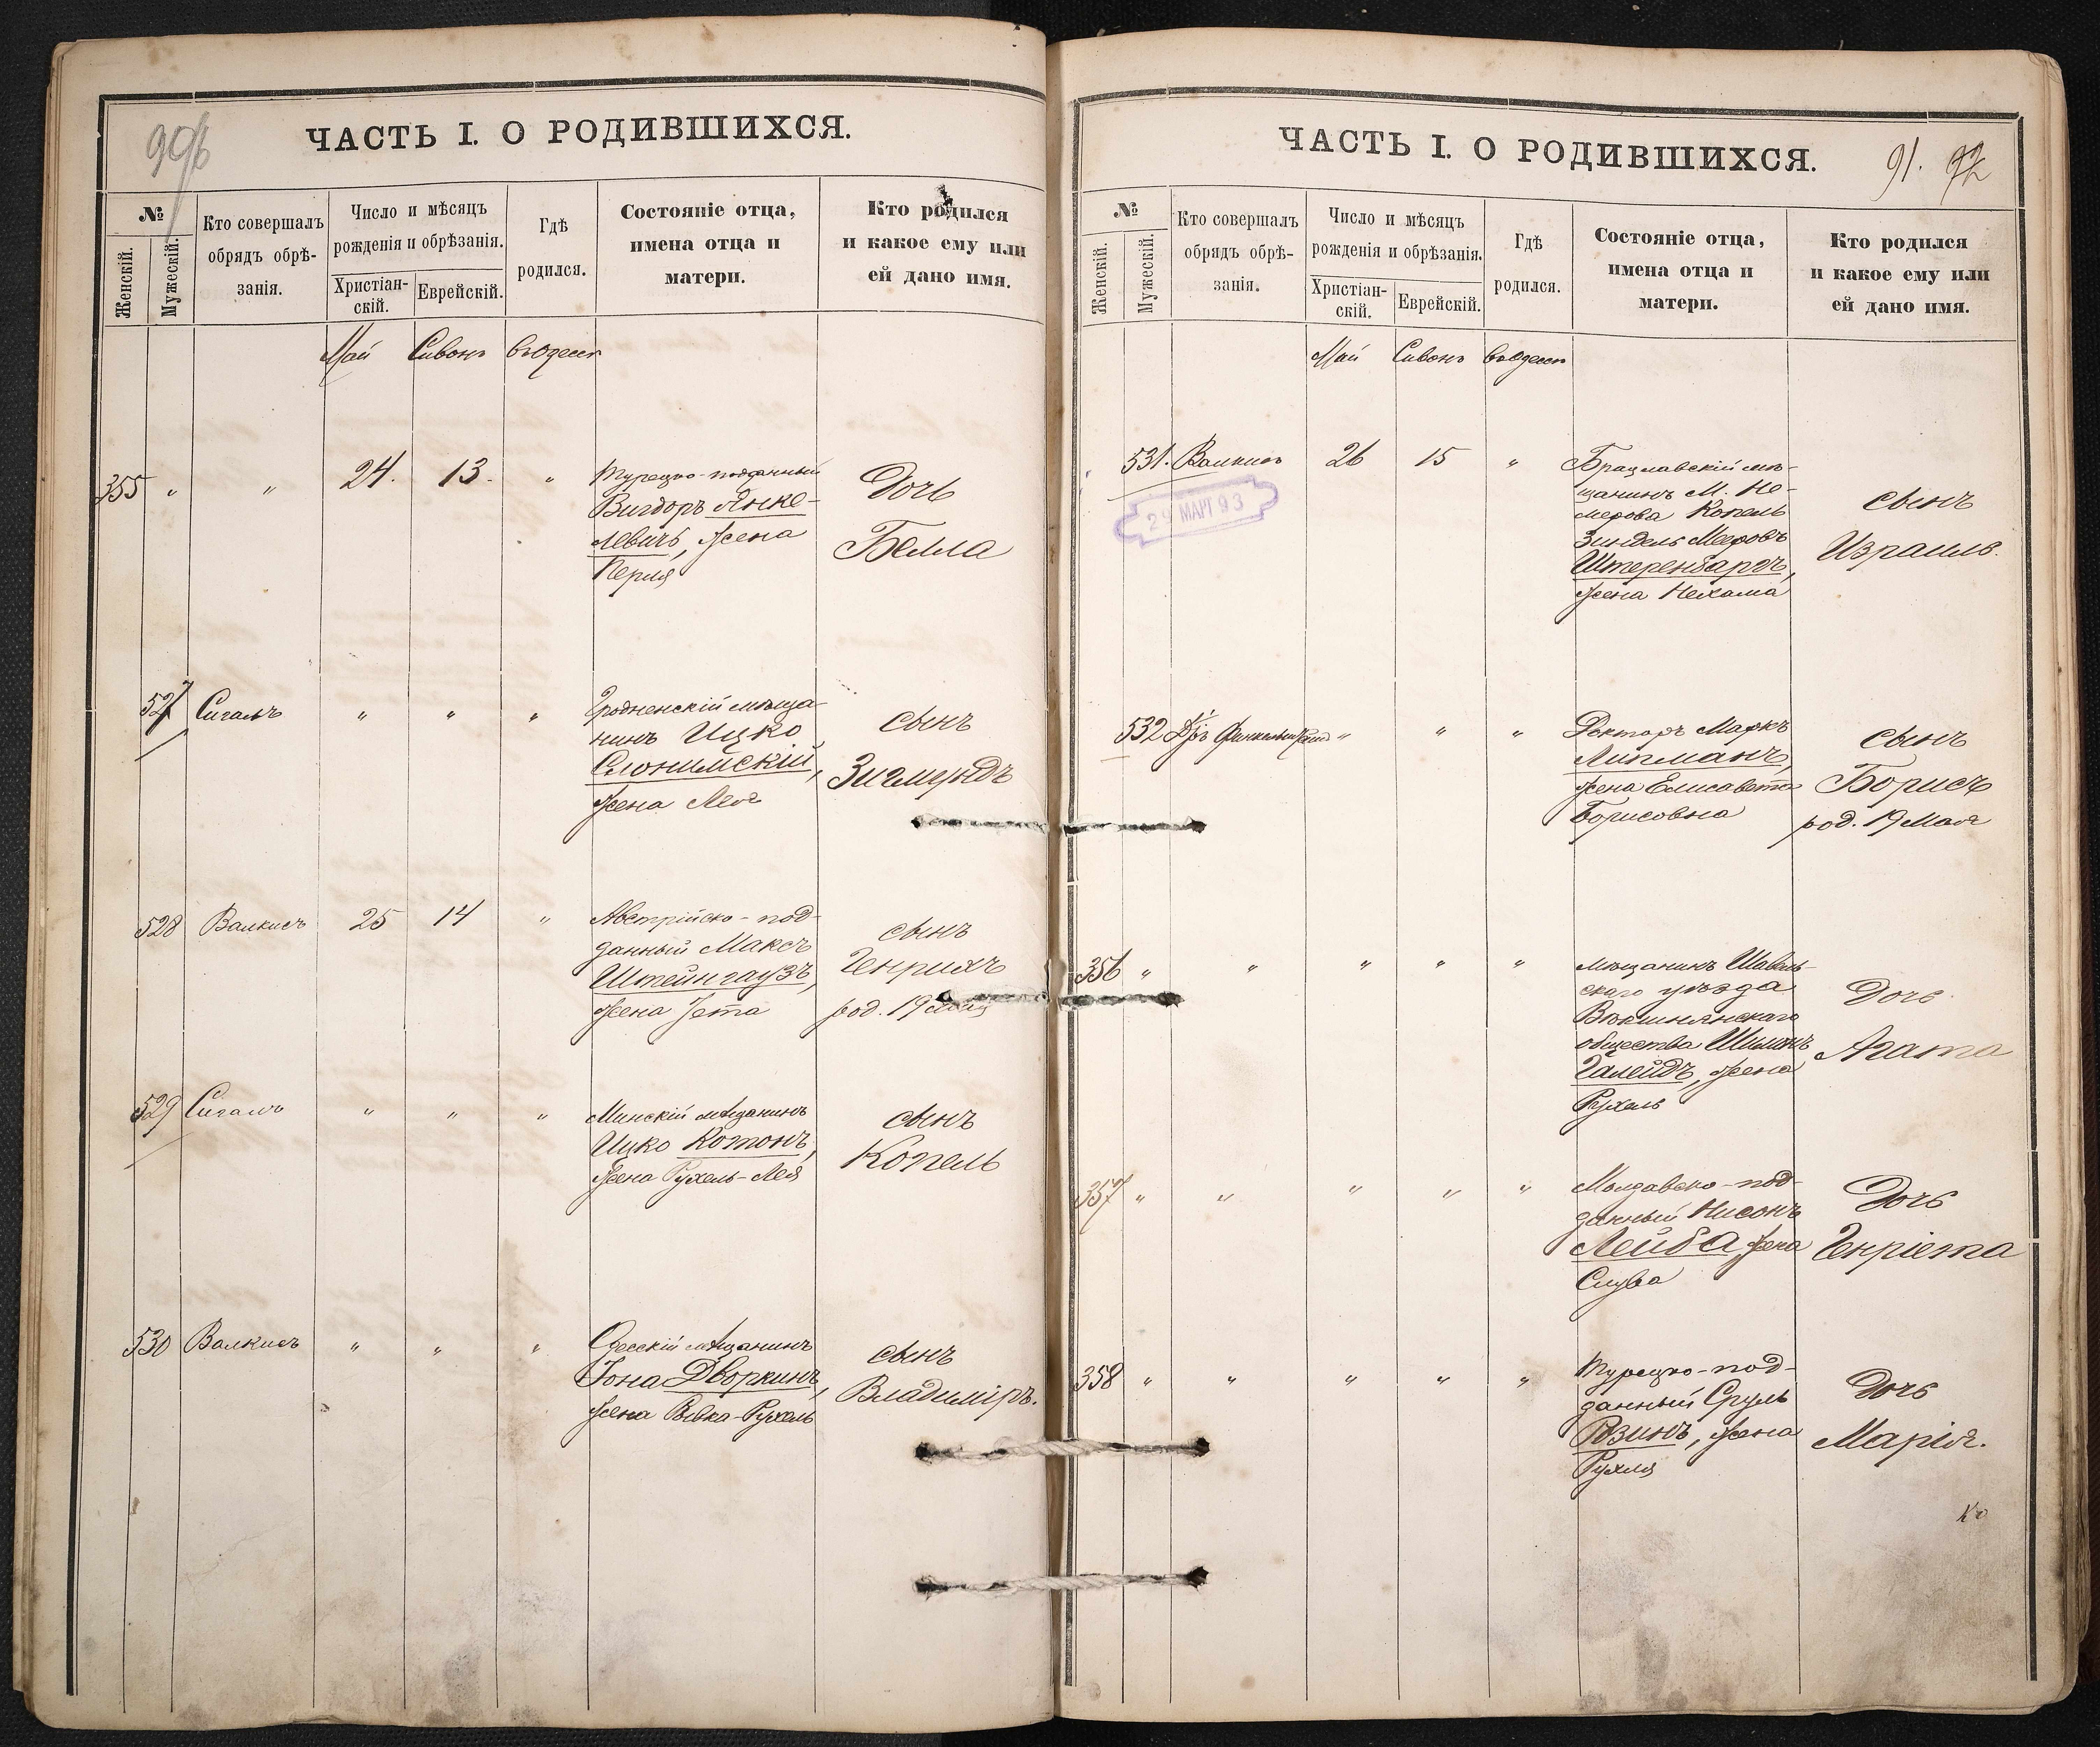 90б
ЧАСТЬ I. О РОДИВШИХСЯ.
№
Женскій.
Мужескій.
Кто совершалъ
обрядъ обрѣ-
занія.
Число и мѣсяцъ
рожденія и обрѣзанія.
Христіан-
скій.
Еврейскій.
Гдѣ
родился.
Состояніе отца,
имена отца и
матери.
Кто родился
и какое ему или
ей дано имя.
Май Сивонъ въ Одессѣ
355 " " 24. 13. "
Турецко-подданный
Вигдоръ Янке-
левичъ, жена
Перля
Дочь
Белла
527 Сигалъ " " "
Гродненскій мѣща-
нинъ Ицко
Слонимскій,
жена Лея
сынъ
Зигмундъ
528 Валкисъ 25 14 "
Австрійско-под-
данный Максъ
Штейнгаузъ,
жена Јетта
сынъ
Генрихъ
род. 19 мая
529 Сигалъ " " "
Минскій мѣщанинъ
Ицко Котонъ,
жена Рухель-Лея
сынъ
Копель
530 Валкисъ " " "
Одесскій мѣщанинъ
Іона Дворкинъ,
жена Ривка-Рухель
сынъ
Владиміръ.
ЧАСТЬ I. О РОДИВШИХСЯ.
91. 92
№
Женскій.
Мужескій.
Кто совершалъ
обрядъ обрѣ-
занія.
Число и мѣсяцъ
рожденія и обрѣзанія.
Христіан-
скій.
Еврейскій.
Гдѣ
родился.
Состояніе отца,
имена отца и
матери.
Кто родился
и какое ему или
ей дано имя.
Май Сивонъ въ Одессѣ
531. Валкисъ 26 15 "
29 МАРТ 93
Брацлавскій мѣ-
щанинъ М. Не-
мерова Копель
Зиндель Меровъ
Штеренбаргъ,
жена Нехама
сынъ
Израиль.
532 " " "
Докторъ Маркъ
Липманъ,
жена Елисавета
Борисовна
сынъ
Борисъ
род. 19 Мая
356 " " " " "
мѣщанинъ Шавель-
скаго уѣзда
Векшнянскаго
общества Шимонъ
Галейдъ, жена
Рухель
Дочь
Агата
357 " " " " "
Молдавско-под-
данный Нисонъ
Лейба, жена
Слува
Дочь
Генріета
358 " " " " "
Турецко-под-
данный Сруль
Розинъ, жена
Рухля
Дочь
Марія.